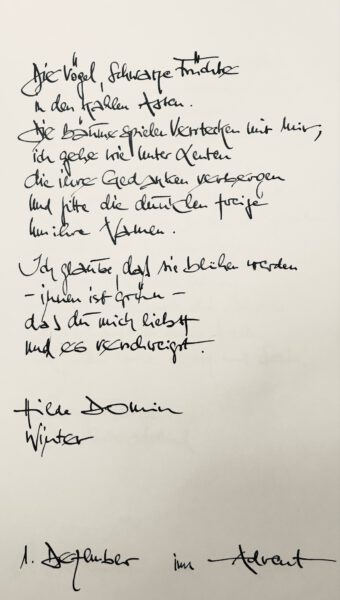 Die Vögel, schwarze Früchte
in den kahlen Ästen.
Die Bäume spielen Verstecken mit mir,
ich gehe wie unter Leuten
die ihre Gedanken verbergen
und bitte die dunklen Zweige
um ihre Namen.
Ich glaube, daß sie blühen werden
- innen ist grün -
daß du mich liebst
und es verschweigst.
Hilde Domin
Winter
1. Dezember im Advent